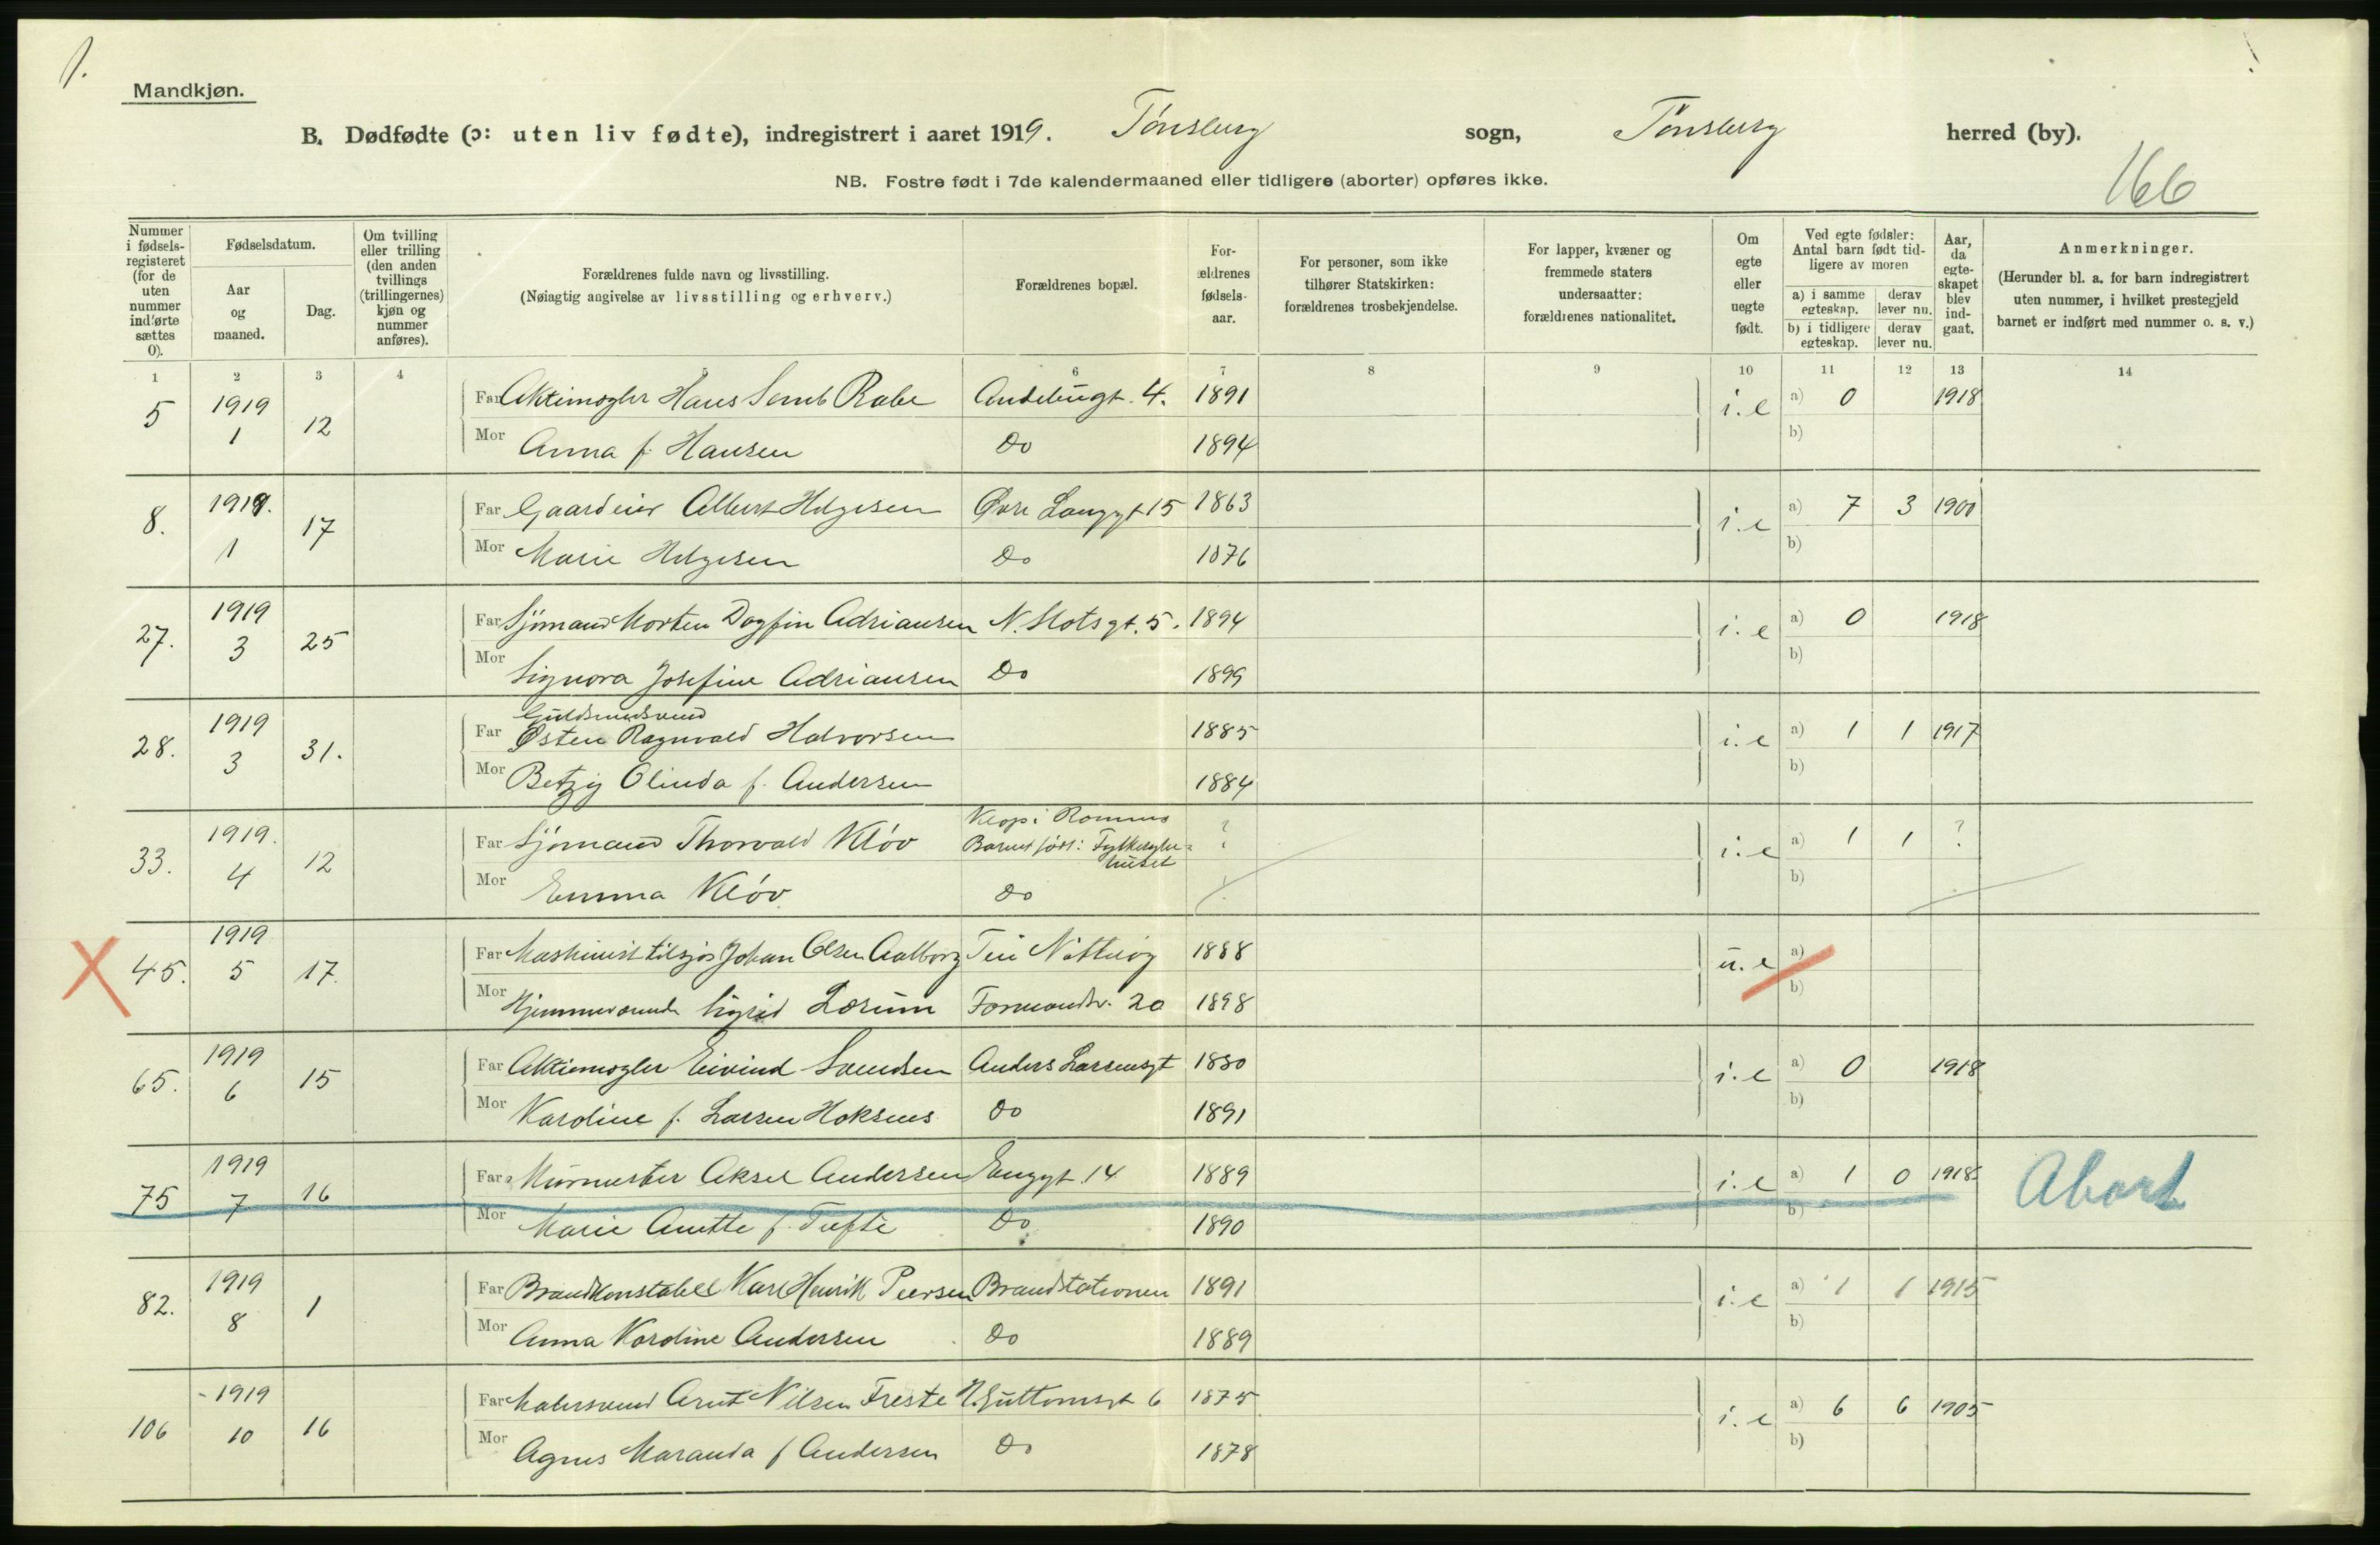 1.
Mandkjøn.
B. Dødfødte (ɔ: uten liv fødte), indregistrert i aaret 1919. Tönsberg sogn, Tönsberg herred (by).
NB. Fostre født i 7de kalendermaaned eller tidligere (aborter) opføres ikke.
166
Nummer i fødsels-registeret (for de uten nummer indførte sættes 0).
Fødselsdatum.
Aar og maaned.
Dag.
Om tvilling eller trilling (den anden tvillings (trillingernes) kjøn og nummer anføres).
Forældrenes fulde navn og livsstilling.
(Nøiagtig angivelse av livsstilling og erhverv.)
Forældrenes bopæl.
For-ældrenes fødsels-aar.
For personer, som ikke tilhører Statskirken: forældrenes trosbekjendelse.
For lapper, kvæner og fremmede staters undersaatter: forældrenes nationalitet.
Om egte eller uegte født.
Ved egte fødsler: Antal barn født tid-ligere av moren
a) i samme egteskap. derav lever nu.
b) i tidligere egteskap. derav lever nu.
Aar, da egte-skapet blev ind-gaat.
Anmerkninger.
(Herunder bl. a. for barn indregistrert uten nummer, i hvilket prestegjeld barnet er indført med nummer o. s. v.)
1 2 3 4 5 6 7 8 9 10 11 12 13 14
5 1919 1 12 Far Aktiemægler Hans Semb Rabe Andebugt. 4. 1891 i. e a) 0 1918
Mor Anna f. Hansen Do 1894 b)
8. 1919. 1 17 Far Gaardeier Albert Helgesen Øvre Langgt 15 1863 i. e a) 7 3 1900
Mor Marie Helgesen Do 1876 b)
27. 1919 3 25 Far Sjömand Morten Dagfin Adriansen N. Slotsgt. 5. 1894 i. e a) 0 1918
Mor Signora Josefine Adriansen Do 1899 b)
28. 1919 3 31. Far Guldsmedsvend
Østen Ragnvald Halvorsen 1885 i. e a) 1 1 1917
Mor Betzy Olinda f. Andersen 1884 b)
33. 1919. 4 12 Far Sjömand Thorvald Klöv Klop i Ramnes
Barnet født: Fylkesyke=
huset ? i. e a) 1 1 ?
Mor Emma Klöv Do b)
45. 1919 5 17. Far Maskinist tilsjøs Johan Olsen Aalborg Teie Nötteröy 1888 u. e a)
Mor Hjemmeværende Sigrid Lorum Formandsv. 20 1898 b)
65. 1919 6 15 Far Aktiemægler Eivind Svendsen Anders Larsensgt 1880 i. e a) 0 1918
Mor Karoline f. Larsen Hoksnes Do 1891 b)
75 1919 7 16 Far Murmester Aksel Andersen Enggt. 14 1889 i. e a) 1 0 1918 Abort
Mor Marie Anette f. Tufte Do 1890 b)
82. 1919 8 1 Far Brandkonstabel Karl Henrik Peersen Brandstationen 1891 i. e a) 1 1 1915
Mor Anna Karoline Andersen Do 1889 b)
106 1919 10 16 Far Malersvend Arnt Nilsen Freste N. Guttormsgt 6 1875 i. e a) 6 6 1905
Mor Agnes Maranda f Andersen Do 1878 b)